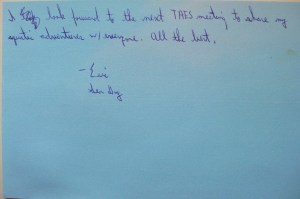 I look forward to the next TAFS meeting to share my
aquatic adventures w/ everyone. All the best,
- Eric